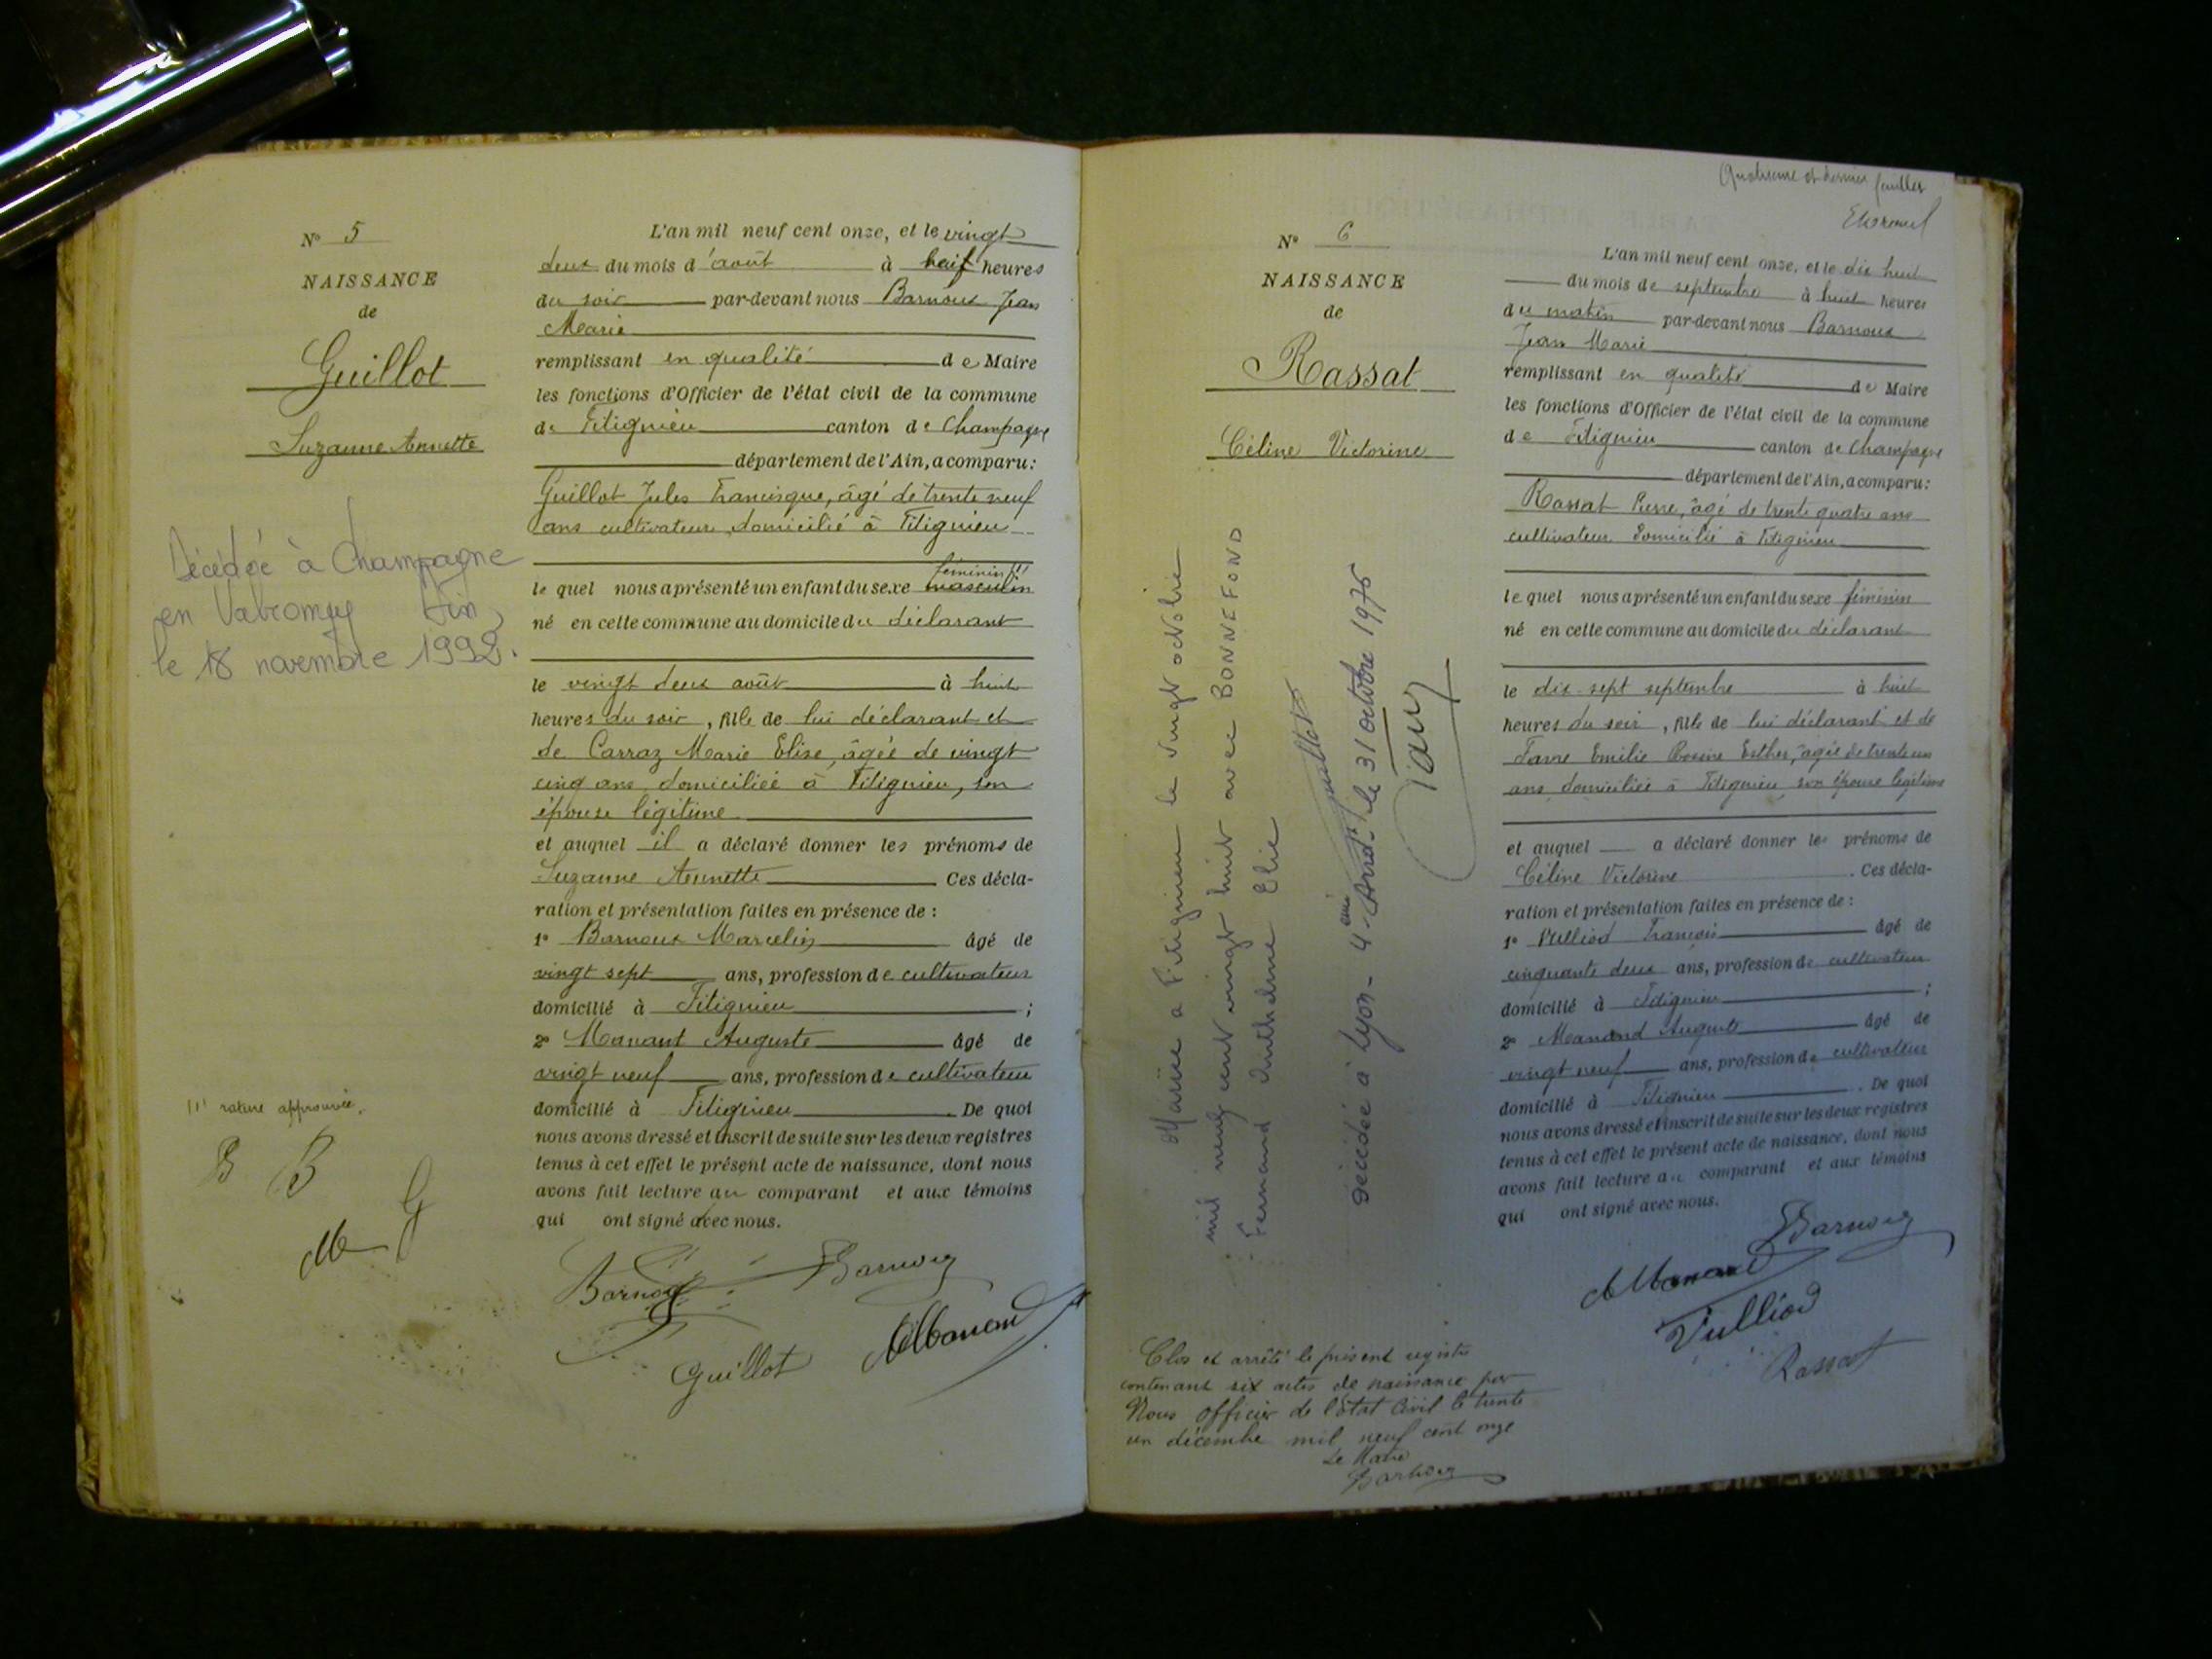 N° 5
NAISSANCE
de
Guillot
Suzanne Annette
Décédée à Champagne
en Valromey Ain
le 18 novembre 1992.
(1) rature approuvée.
B B
M G
L'an mil neuf cent onze, et le vingt
deux du mois d'août à huit heures
du soir par-devant nous Barnoux Jean
Marie
remplissant en qualité de Maire
les fonctions d'Officier de l'état civil de la commune
de Fitignieu canton de Champagne
département de l'Ain, a comparu:
Guillot Jules Francisque, âgé de trente neuf
ans cultivateur, domicilié à Fitignieu
féminin (1)
le quel nous a présenté un enfant du sexe masculin
né en cette commune au domicile du déclarant
le vingt deux août à huit
heures du soir, fille de lui déclarant et
de Carraz Marie Elise, âgée de vingt
cinq ans, domiciliée à Fitignieu, son
épouse légitime
et auquel il a déclaré donner les prénoms de
Suzanne Annette Ces décla-
ration et présentation faites en présence de :
1° Barnoux Marcelin âgé de
vingt sept ans, profession de cultivateur
domicilié à Fitignieu ;
2° Manant Auguste âgé de
vingt neuf ans, profession de cultivateur
domicilié à Fitignieu . De quoi
nous avons dressé et inscrit de suite sur les deux registres
tenus à cet effet le présent acte de naissance, dont nous
avons fait lecture au comparant et aux témoins
qui ont signé avec nous.
Barnoux Barnoux
Guillot Manand
Quatrième et dernier feuillet
N° 6
NAISSANCE
de
Rassat
Céline Victorine
Mariée à Fitignieu le vingt octobre
mil neuf cent vingt huit avec BONNEFOND
Fernand Anthelme Elie
juillet
Décédée à Lyon - 4 ème Ardt. le 31 octobre 1976
L'an mil neuf cent onze, et le dix huit
du mois de septembre à huit heures
du matin par-devant nous Barnoux
Jean Marie
remplissant en qualité de Maire
les fonctions d'Officier de l'état civil de la commune
de Fitignieu canton de Champagne
département de l'Ain, a comparu:
Rassat Pierre, âgé de trente quatre ans
cultivateur domicilié à Fitignieu
le quel nous a présenté un enfant du sexe féminin
né en cette commune au domicile du déclarant
le dix-sept septembre à huit
heures du soir, fille de lui déclarant et de
Favre Emilie Rosine Esther, âgée de trente un
ans domiciliée à Fitignieu, son épouse légitime
et auquel a déclaré donner les prénoms de
Céline Victorine . Ces décla-
ration et présentation faites en présence de :
1° Vulliod François âgé de
cinquante deux ans, profession de cultivateur
domicilié à Fitignieu ;
2° Manand Auguste âgé de
vingt neuf ans, profession de cultivateur
domicilié à Fitignieu . De quoi
nous avons dressé et inscrit de suite sur les deux registres
tenus à cet effet le présent acte de naissance, dont nous
avons fait lecture au comparant et aux témoins
qui ont signé avec nous.
Barnoux
Manand
Vulliod
Rassat
Clos et arrêté le présent registre
contenant six actes de naissance par
Nous officier de l'état civil le trente
un décembre mil neuf cent onze
Le Maire
Barnoux